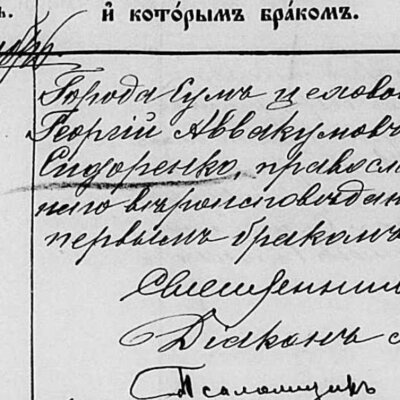 и҆ кото́рымъ бра́комъ.
Города Сумъ цеховой
Георгій Аввакумовъ
Сидоренко, правосла
наго вѣроисповѣдан
первымъ бракомъ
Священник
Діаконъ
Псаломщикъ